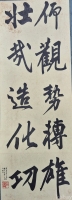 仰觀勢轉雄
壯哉造化功